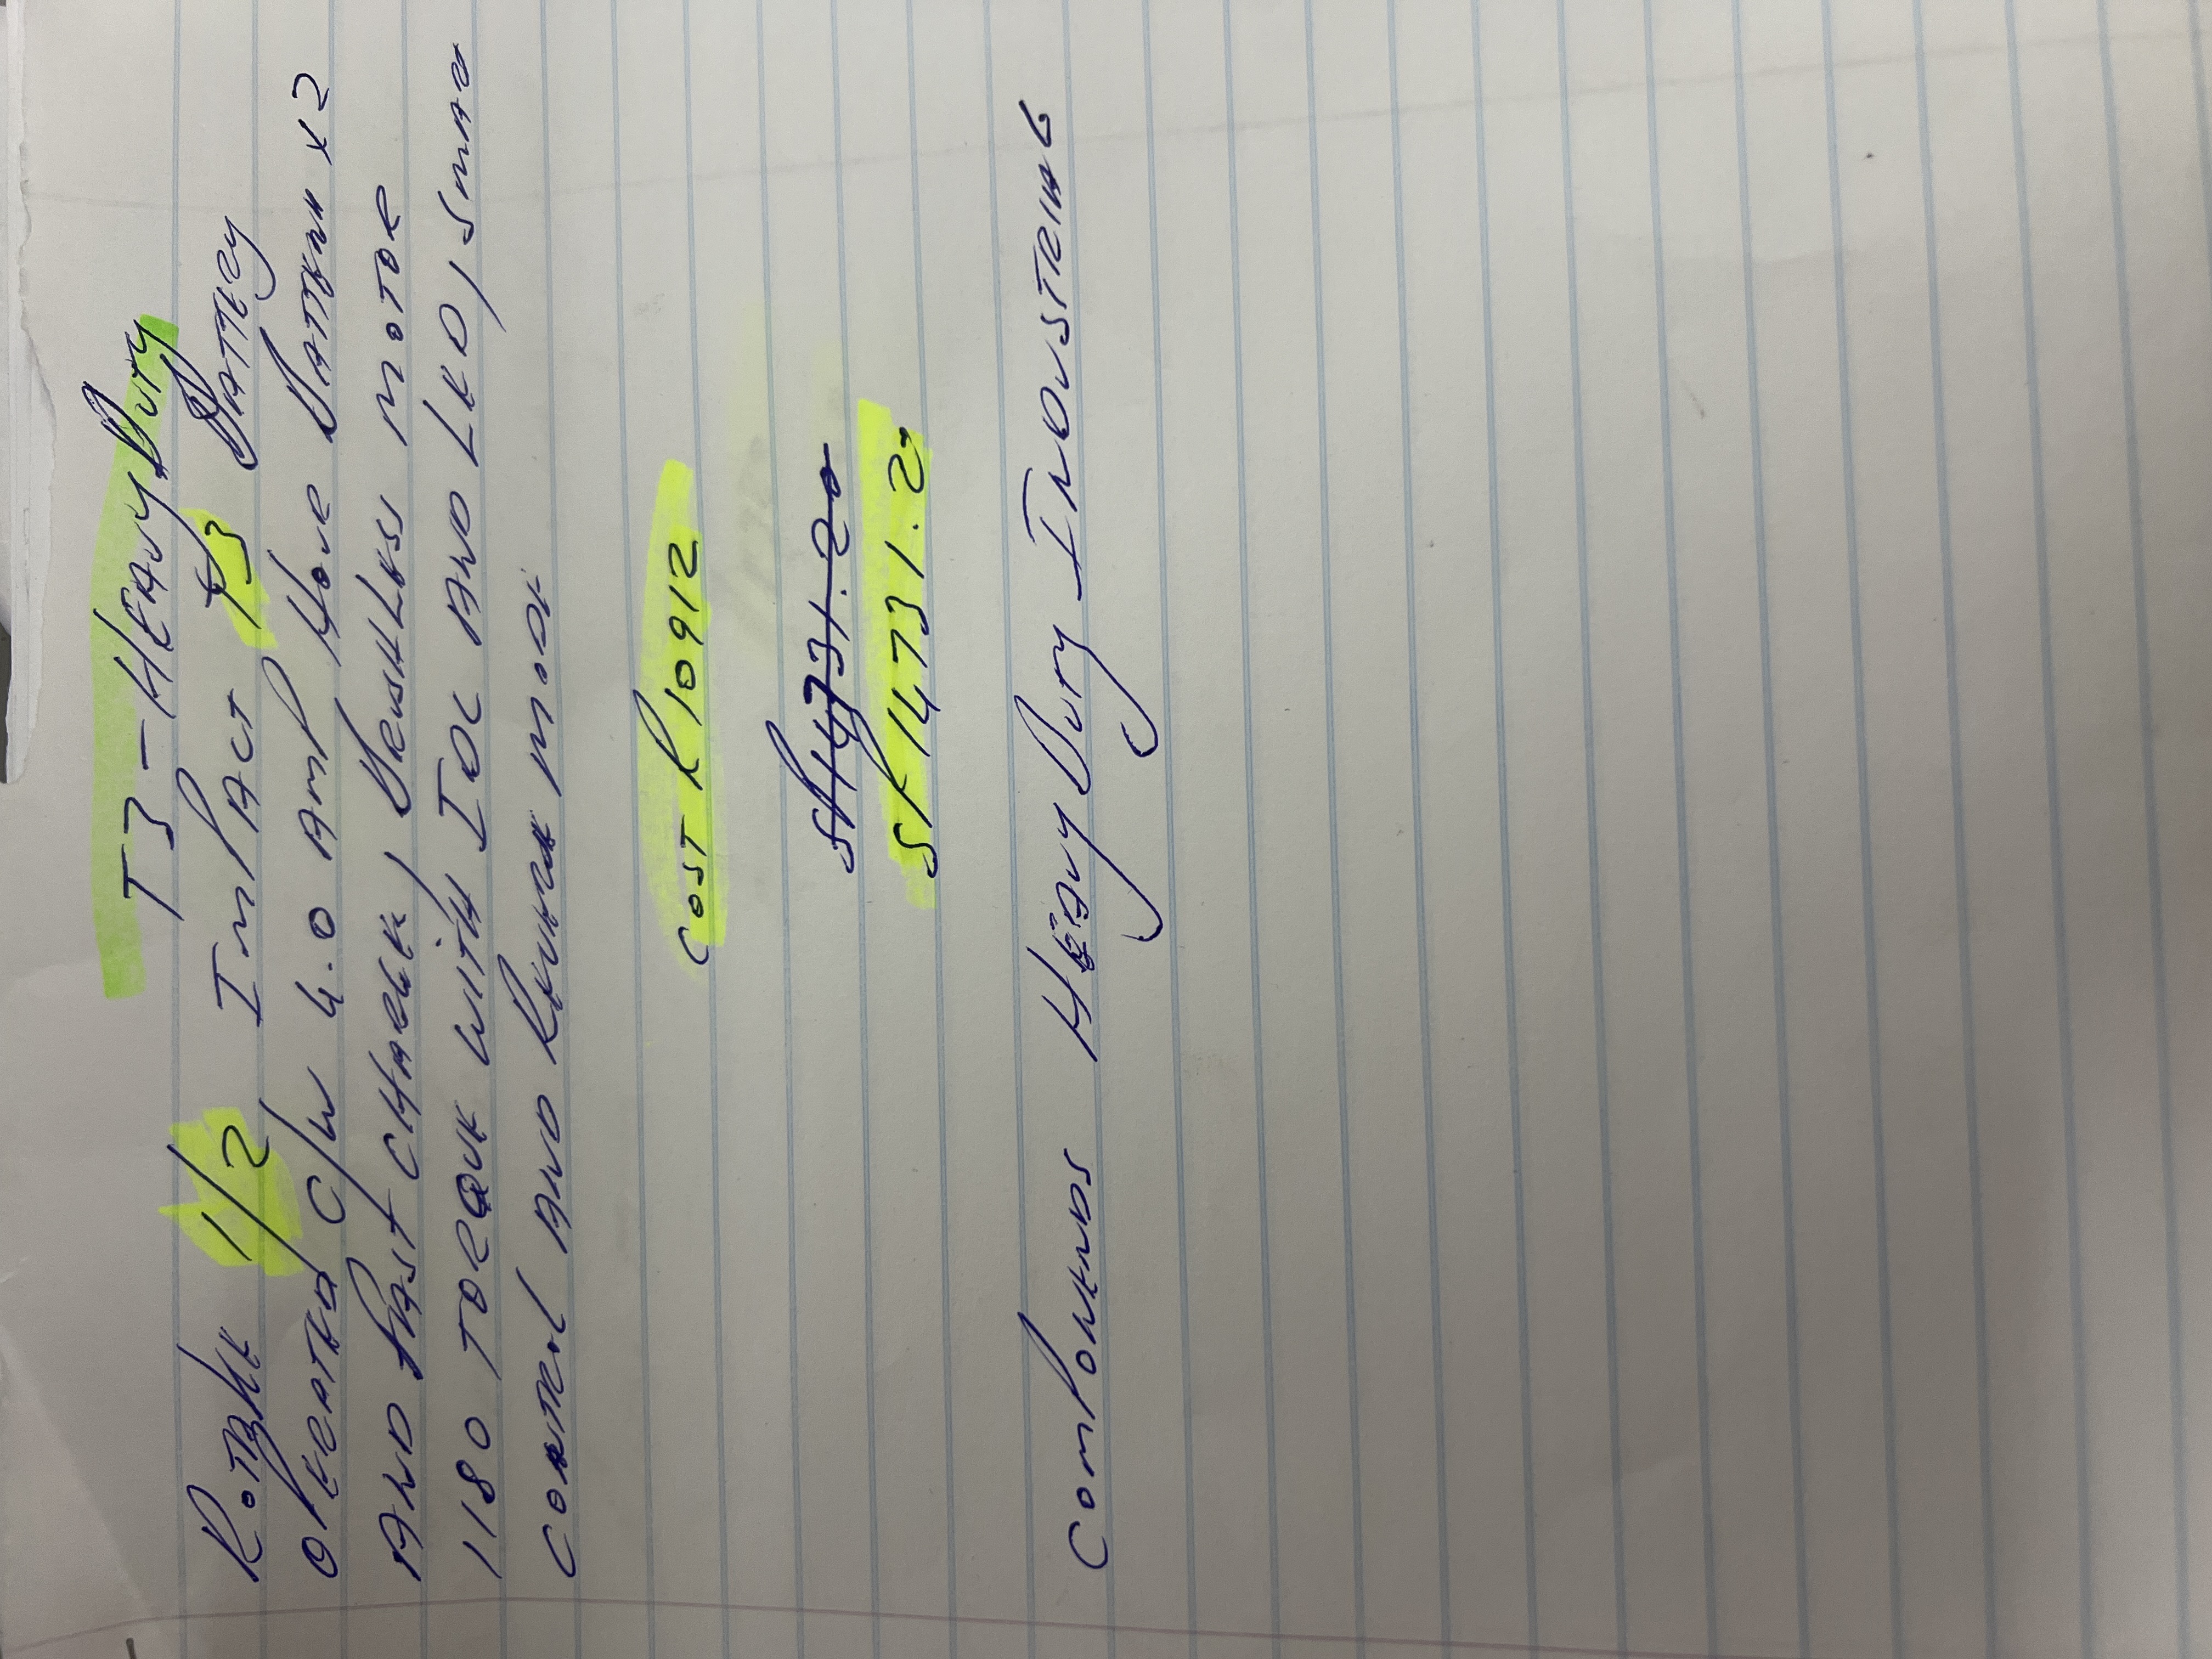 T3 - HEAVY DUTY
ROTAKE 1/2 IMPACT T3 BATTERY
OPERATED C/W 4.0 AMP HOUR BATTERY X2
AND FAST CHARGER, BRUSHLESS MOTOR
1180 TORQUE WITH IOC AND LED, SMAR
CONTROL AND REVERSE MODE
COST R10912
SP14731.20
SP14731.20
COMPONENDS HEAVY DUTY INDUSTRIAL